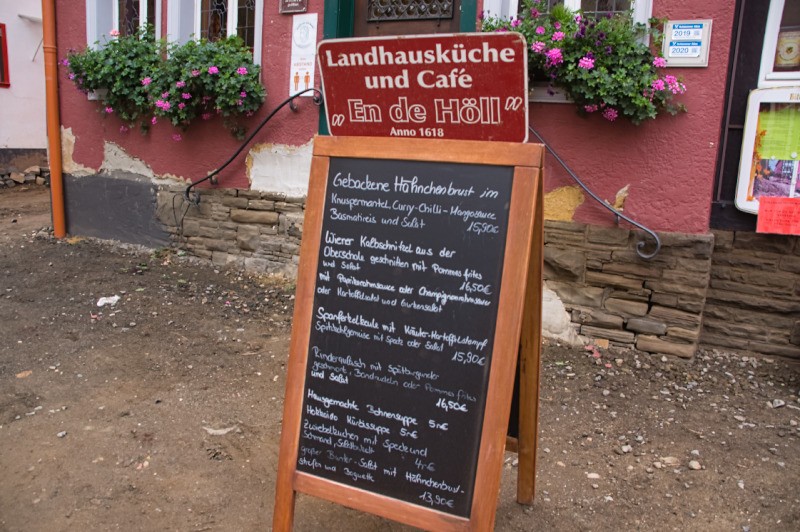 Landhausküche
und Café
"En de Höll"
Anno 1618
2019
2020
Gebackene Hähnchenbrust im
Knuspermantel, Curry-Chilli-Mangosauce
Basmatireis und Salat 15,90€
Wiener Kalbschnitzel aus der
Oberschale geschnitten mit Pommes frites
und Salat 16,50€
mit Paprikarahmsauce oder Champignonrahmsauce
oder Kartoffelsalat und Gurkensalat
Spanferkelkeule mit Kräuter-Kartoffelstampf
Spitzkohlgemüse mit Speck oder Salat
15,90€
Rindergulasch mit Spätburgunder
geschmort, Bandnudeln oder Pommes frites
und Salat
16,50€
Hausgemachte Bohnensuppe 5,-€
Hokkaido Kürbissuppe 5,-€
Zwiebelkuchen mit Speck und
Schmand, 4,-€
großer Bunter-Salat mit Hähnchenbrust-
streifen und Baguette
13,90€